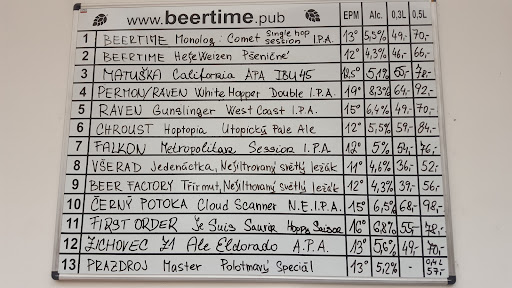 www.beertime.pub EPM Alc. 0,3L 0,5L
1 BEERTIME Monolog: Comet Single hop session I.P.A. 13° 5,5% 49,- 70,-
2 BEERTIME HefeWeizen Pšeničné 12° 4,3% 46,- 66,-
3 MATUŠKA California APA IBU45 12,5° 5,1% 55,- 78,-
4 PERMON/RAVEN White Hopper Double I.P.A. 19° 8,3% 64,- 92,-
5 RAVEN Gunslinger West Coast I.P.A. 15° 6,4% 49,- 70,-
6 CHROUST Hoptopia Utopický Pale Ale 12° 5,5% 59,- 84,-
7 FALKON Metropolitan Session I.P.A. 12° 5% 54,- 76,-
8 VŠERAD Jedenáctka, Nefiltrovaný světlý ležák 11° 4,6% 36,- 52,-
9 BEER FACTORY Třírmut, Nefiltrovaný světlý ležák 12° 4,3% 39,- 56,-
10 ČERNÝ POTOKA Cloud Scanner N.E.I.P.A. 15° 6,5% 68,- 98,-
11 FIRST ORDER Je Suis Sauvin Hoppy Saison 16° 6,8% 55,- 78,-
12 ZICHOVEC Z1 Ale Eldorado A.P.A. 13° 5,6% 49,- 70,-
13 PRAZDROJ Master Polotmavý Speciál 13° 5,2% - 0,4L 57,-